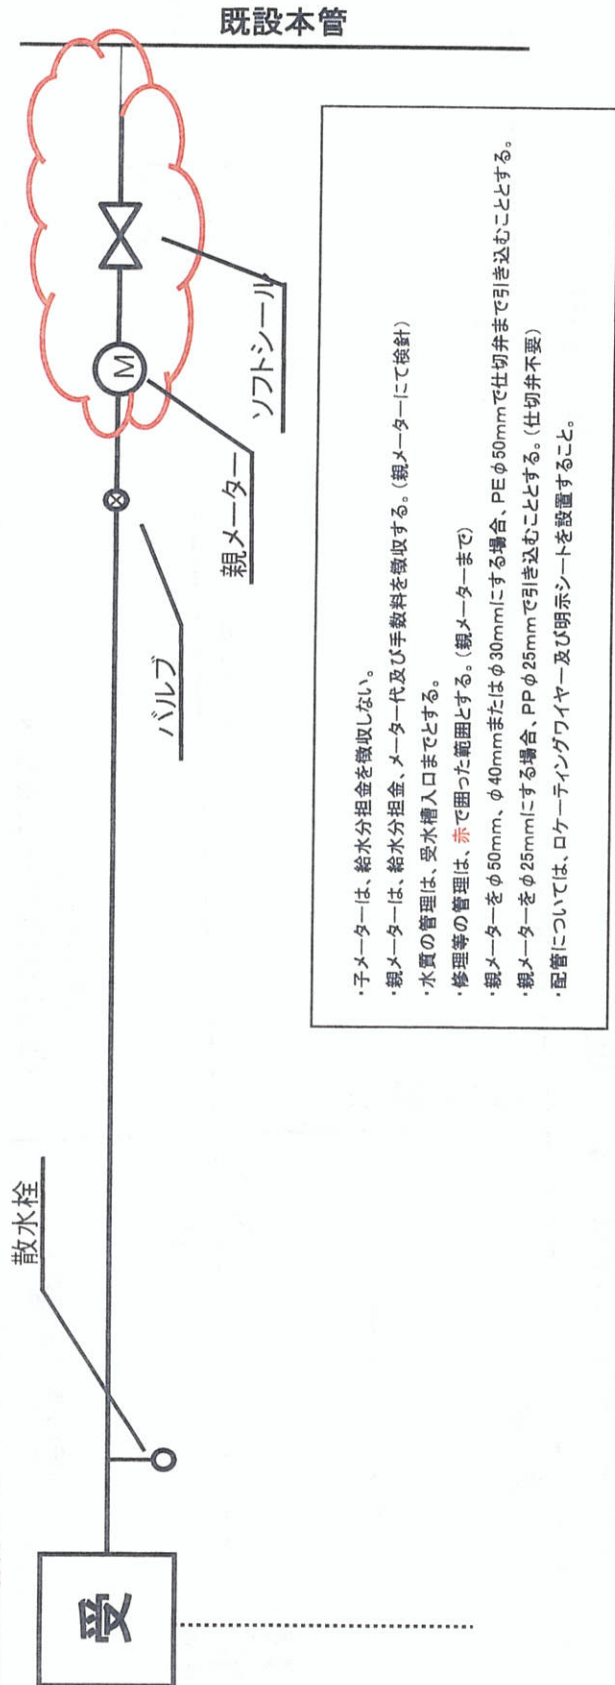 既設本管
ソフトシール
M
親メーター
バルブ
散水栓
受
・子メーターは、給水分担金を徴収しない。
・親メーターは、給水分担金、メーター代及び手数料を徴収する。(親メーターにて検針)
・水質の管理は、受水槽入口までとする。
・修理等の管理は、赤で囲った範囲とする。(親メーターまで)
・親メーターをφ50mm、φ40mmまたはφ30mmにする場合、PEφ50mmで仕切弁まで引き込むこととする。
・親メーターをφ25mmにする場合、PPφ25mmで引き込むこととする。(仕切弁不要)
・配管については、ロケーティングワイヤー及び明示シートを設置すること。